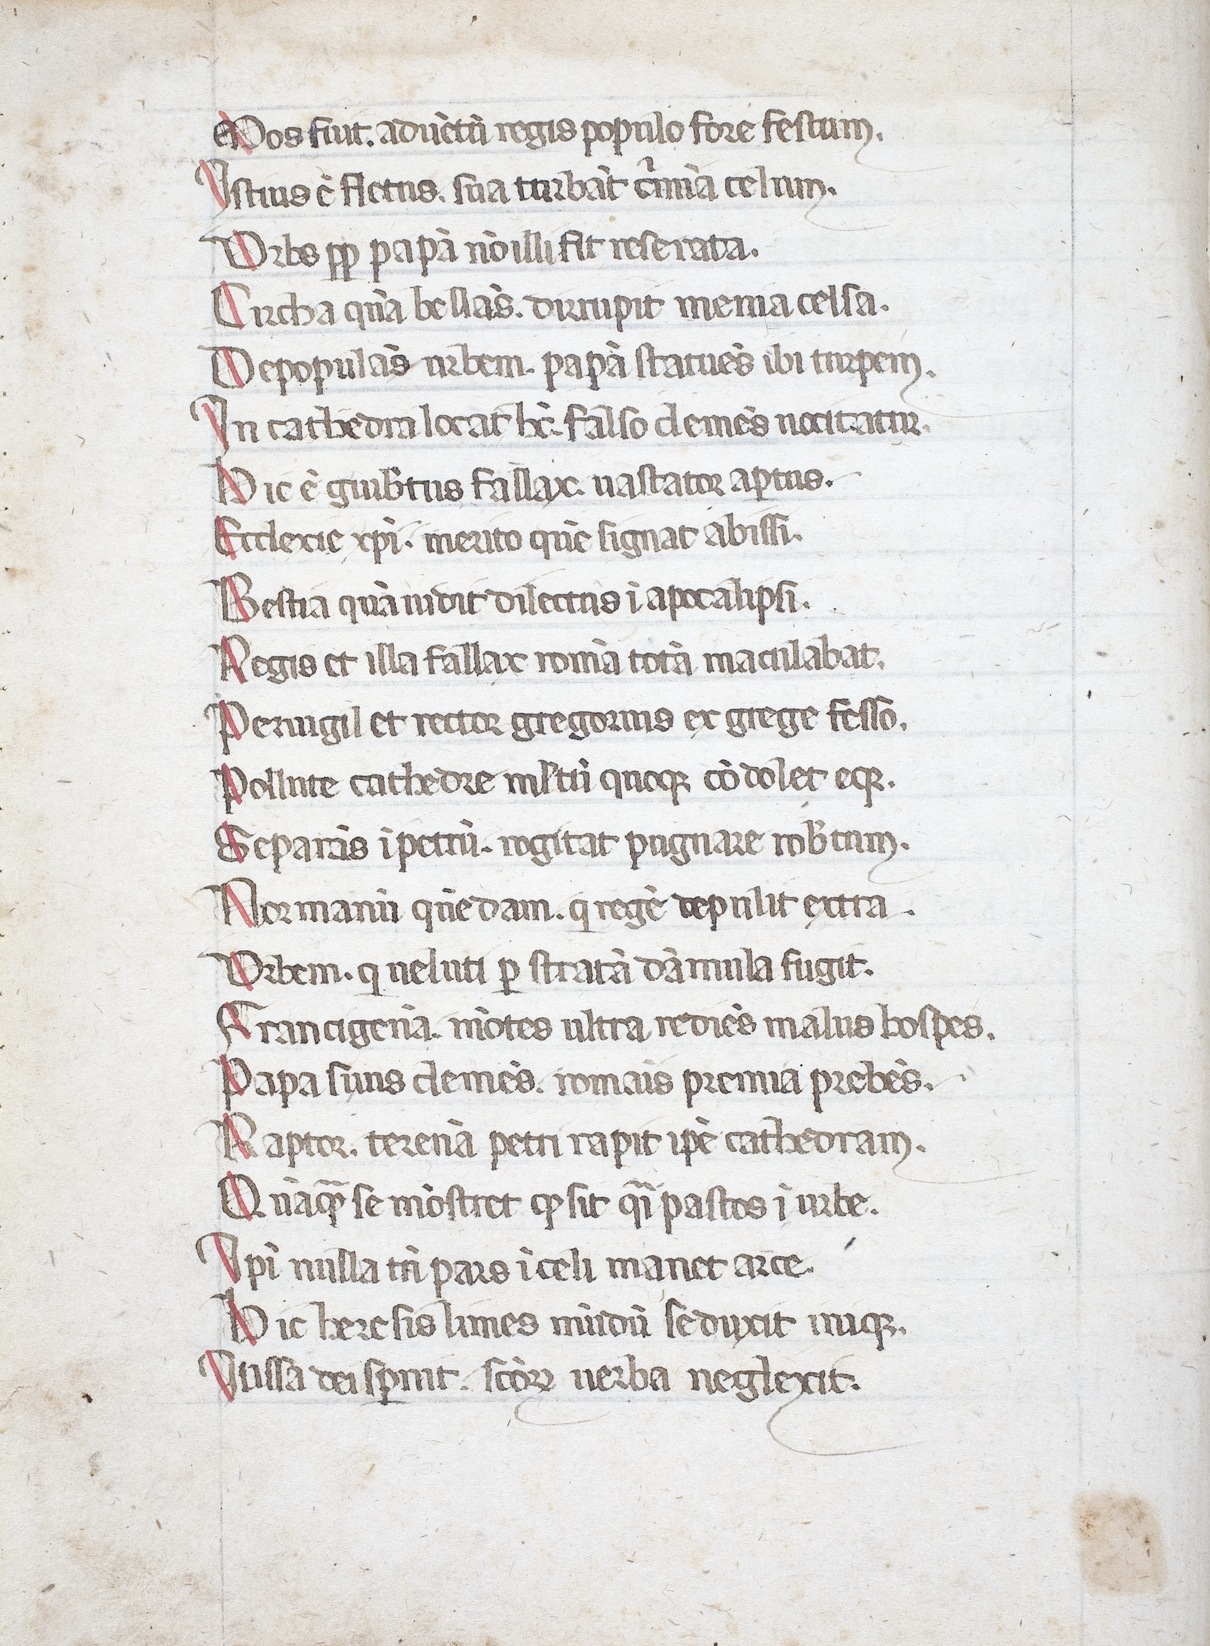 Mos fiut. aduẽtũ regis populo fore festum.
Istius ẽ fletus. sua turbãt c̓mĩa celum.
Vrbs ꝓp papã nõ illi fit reserata.
Circha qũa bellãs. dirrupit menia celsa.
Depopulãs urbem. papã statuẽs ibi turpem.
In cathedra locat hẽ. falso clemẽs uocitatur.
Hic ẽ guib̓tus fallax. uastator aptus.
Ecclexie xp̃i. merito quẽ signat abissi.
Bestia quã uidit dilectus ĩ apocalipsi.
Regis et illa fallax romã totã maculabat.
Peruigil et rector gregorius ex grege fesso.
Pollute cathedre ml̓tũ quoqꝫ cõdolet eqꝫ.
Separãs ĩpetrũ. rogitat pugnare rob̓tum.
Normanũ quẽdam. q regẽ depulit extra.
Vrbem. q ueluti ꝑ stratã dãmula fugit.
Francigenã. mõtes ultra rediẽs malus hospes.
Papa suus clemẽs. romãis premia prebẽs.
Raptor. terenã petri rapit ip̃e cathedram.
Quãqꝫ se mõstret qͥ sit q̃i pastos ĩ urbe.
Ip̃i nulla tñ pars ĩ celi manet arce.
Hic heresis limes mũdũ seduxit iniqꝫ.
Iussa dei sꝑnit. scõꝝ uerba neglexit.